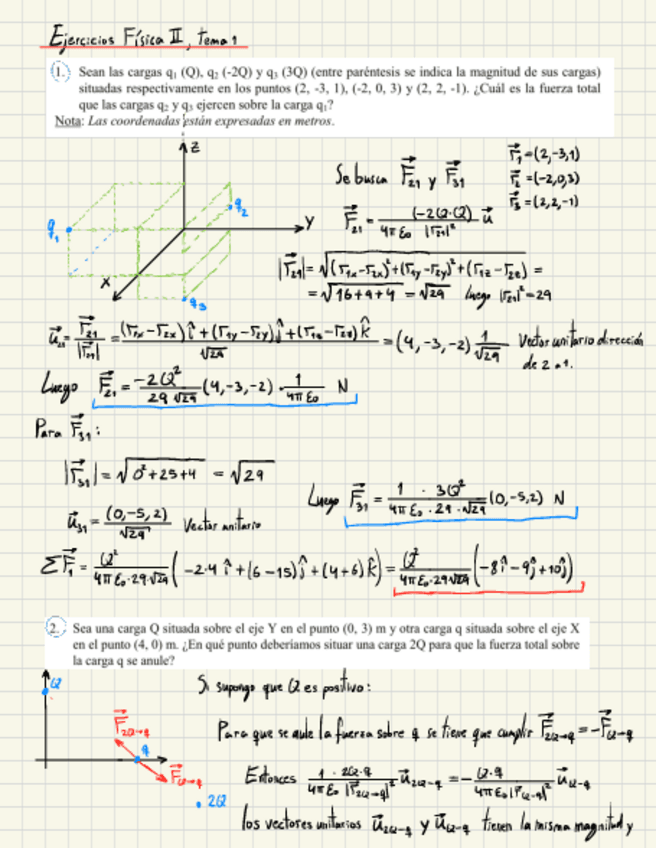 Ejercicios Física II, tema 1
1. Sean las cargas q₁ (Q), q₂ (-2Q) y q₃ (3Q) (entre paréntesis se indica la magnitud de sus cargas)
situadas respectivamente en los puntos (2, -3, 1), (-2, 0, 3) y (2, 2, -1). ¿Cuál es la fuerza total
que las cargas q₂ y q₃ ejercen sobre la carga q₁?
Nota: Las coordenadas están expresadas en metros.
Z
q₂
q₁
Y
X
q₃
Se busca F⃗₂₁ y F⃗₃₁
r⃗₁=(2,-3,1)
r⃗₂=(-2,0,3)
r⃗₃=(2,2,-1)
F⃗₂₁ = (-2Q·Q)/(4πε₀ |r₂₁|²) u⃗
|r⃗₂₁| = √((r₁ₓ-r₂ₓ)²+(r₁y-r₂y)²+(r₁z-r₂z) =
= √(16+9+4) = √29 luego |r₂₁|²=29
u⃗₂₁ = r⃗₂₁/|r⃗₂₁| = ((r₁ₓ-r₂ₓ)î+(r₁y-r₂y)ĵ+(r₁z-r₂z)k̂)/√29 = (4,-3,-2) 1/√29 Vector unitario dirección
de 2 a 1.
Luego F⃗₂₁ = -2Q²/(29 √29) (4,-3,-2) · 1/(4πε₀) N
Para F⃗₃₁:
|r⃗₃₁| = √(0²+25+4) = √29
u⃗₃₁ = (0,-5,2)/√29 Vector unitario
Luego F⃗₃₁ = (1 · 3Q²)/(4πε₀·29·√29) (0,-5,2) N
ΣF⃗₁ = Q²/(4πε₀·29·√29) (-2·4 î+(6-15)ĵ+(4+6)k̂) = Q²/(4πε₀·29√29) (-8î-9ĵ+10ĵ)
2. Sea una carga Q situada sobre el eje Y en el punto (0, 3) m y otra carga q situada sobre el eje X
en el punto (4, 0) m. ¿En qué punto deberíamos situar una carga 2Q para que la fuerza total sobre
la carga q se anule?
Q
F⃗2Q→q
q
F⃗Q→q
2Q
Si supongo que Q es positivo:
Para que se anule la fuerza sobre q se tiene que cumplir F⃗2Q→q = -F⃗Q→q
Entonces (1 · 2Q·q)/(4πε₀ |r⃗2Q→q|²) u⃗2Q-q = -(Q·q)/(4πε₀|r⃗Q-q|²) u⃗Q-q
los vectores unitarios u⃗2Q-q y u⃗Q-q tienen la misma magnitud y